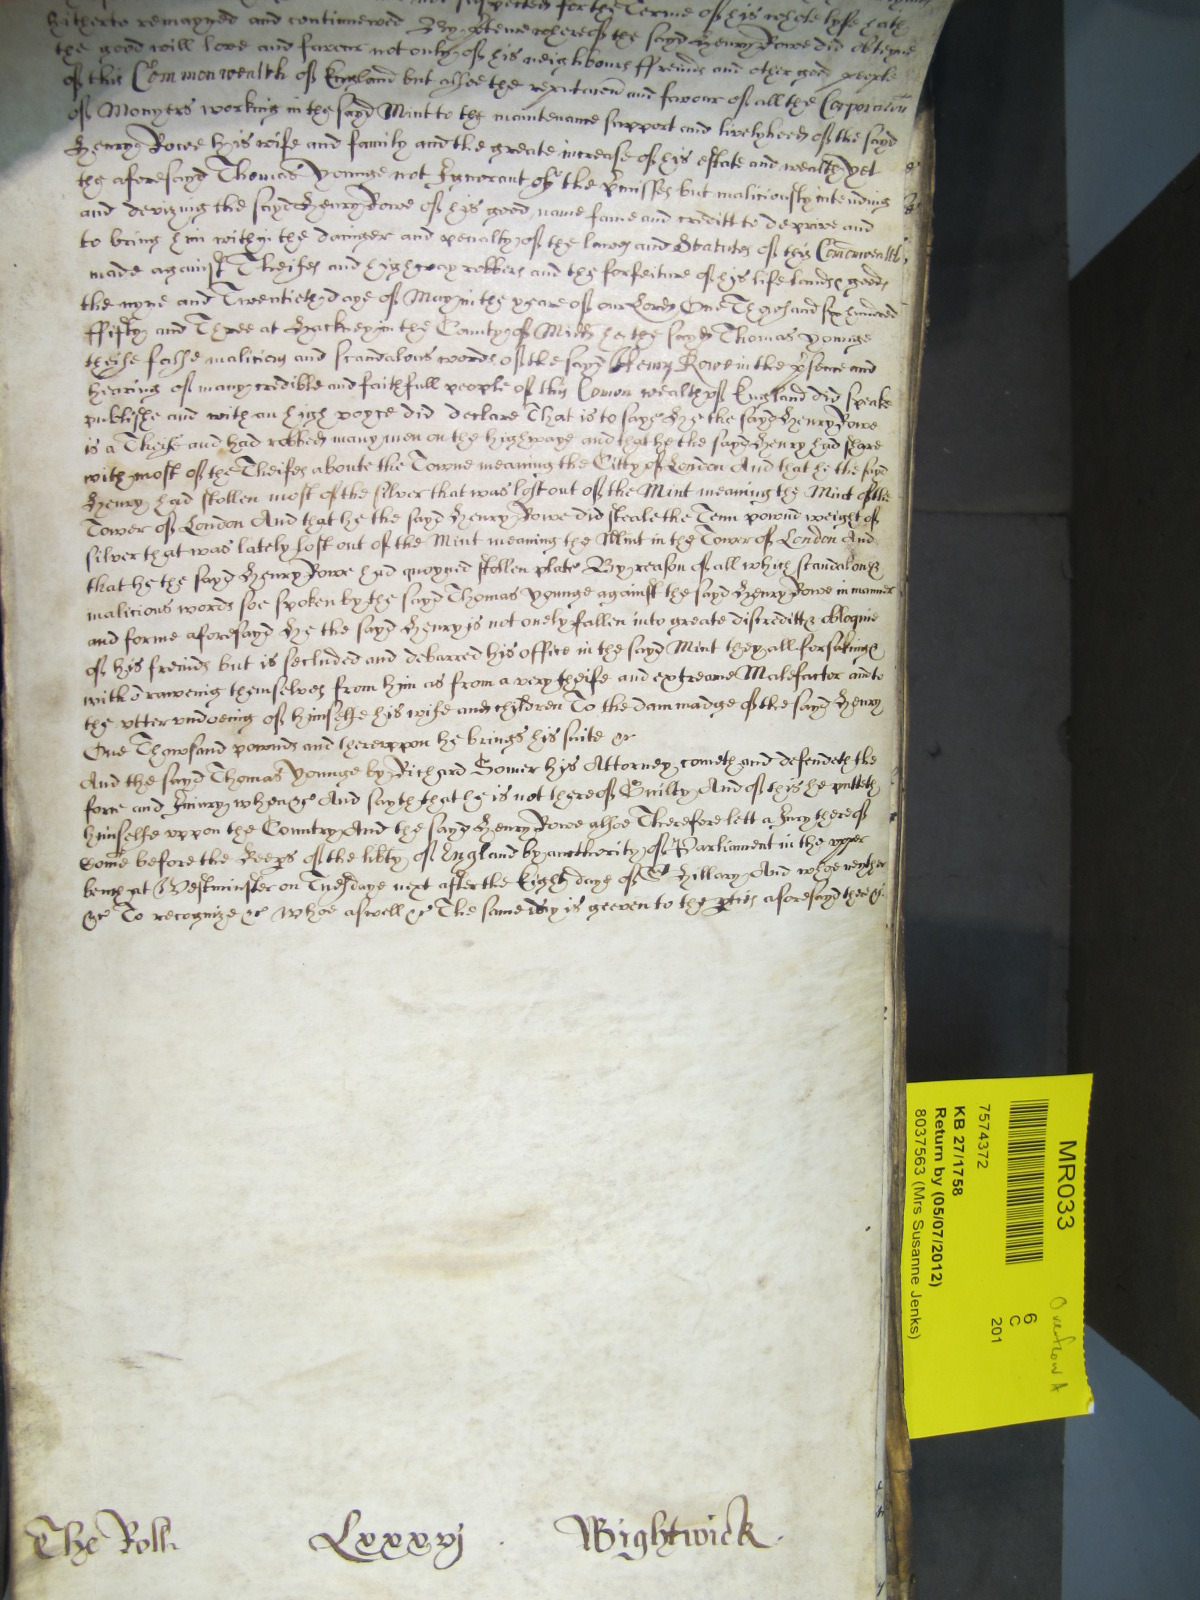 not suspected for the Terme of his whole lyfe hath
hitherto remayned and continnewed By vertue whereof the sayd Henry Rowe did obteyne
the good will love and favour not only of his neighbours ffreinds and other good people
of this Commonwealth of England but alsoe the reputacon and favour of all the Corporacon
of Monyers working in the sayd Mint to the maintenance support and livelyhood of the sayd
Henry Rowe his wife and family and the greate increase of his estate and wealth yet
the aforesayd Thomas Younge not Ignorant of the p'misses but maliciously intending
and devizing the sayd Henry Rowe of his good name fame and creditt to deprive and
to bring him within the dainger and penalty of the lawes and Statutes of this Comonwealth
made against Theifes and highway robbers and the forfeiture of his life lands & goods
the nyne and Twentieth daye of May in the yeare of our Lord One Thowsand six hundred
ffifty and Three at Hackney in the County of Midd he the sayd Thomas Younge
theise false malicious and scandalous words of the sayd Henry Rowe in the p'sence and
hearing of many credible and faithfull people of this Comon wealth of England did speake
publishe and with an high voyce did declare That is to saye Hee the sayd Henry Rowe
is a Theife and had robbed many men on the highwaye and that he the sayd Henry had share
with most of the Theifes aboute the Towne meaning the Citty of London And that he the sayd
Henry had stollen most of the silver that was lost out of the Mint meaning the Mint of the
Tower of London And that he the sayd Henry Rowe did steale the Tenn pownd weight of
silver that was lately lost out of the Mint meaning the Mint in the Tower of London And
that he the sayd Henry Rowe had quoyned stollen plate By reason of all which scandalous &
malicious words soe spoken by the sayd Thomas Younge against the sayd Henry Rowe in manner
and forme aforesayd Hee the sayd Henry is not onely fallen into greate discreditt & obloquie
of his freinds but is secluded and debarred his office in the sayd Mint they all forsaking &
withdraweing themselves from him as from a very theife and extreame Malefactor and to
the vtter vndoeing of himselfe his wife and children To the dammadge of the sayd Henry
One Thowsand pownds and therevppon he brings his suite &c
And the sayd Thomas Younge by Richard Somer his Attorney cometh and defendeth the
force and Iniury when &c And sayth that he is not thereof Guilty And of this he putteth
himselfe vppon the Country And the sayd Henry Rowe alsoe Therefore lett a Jury thereof
Come before the Keeps of the lib'ty of England by authority of Parliament in the vpper
bench at Westminster on Tuesdaye next after the Eight daye of St Hillary And whoe neyther
&c To recognize &c Whoe aswell &c The same day is geeven to the p'ties aforesayd there &c
The Roll Lxxxvj Wightwick
MR033
7574372
KB 27/1758
Return by (05/07/2012)
8037563 (Mrs Susanne Jenks)
6
C
201
Overflow A